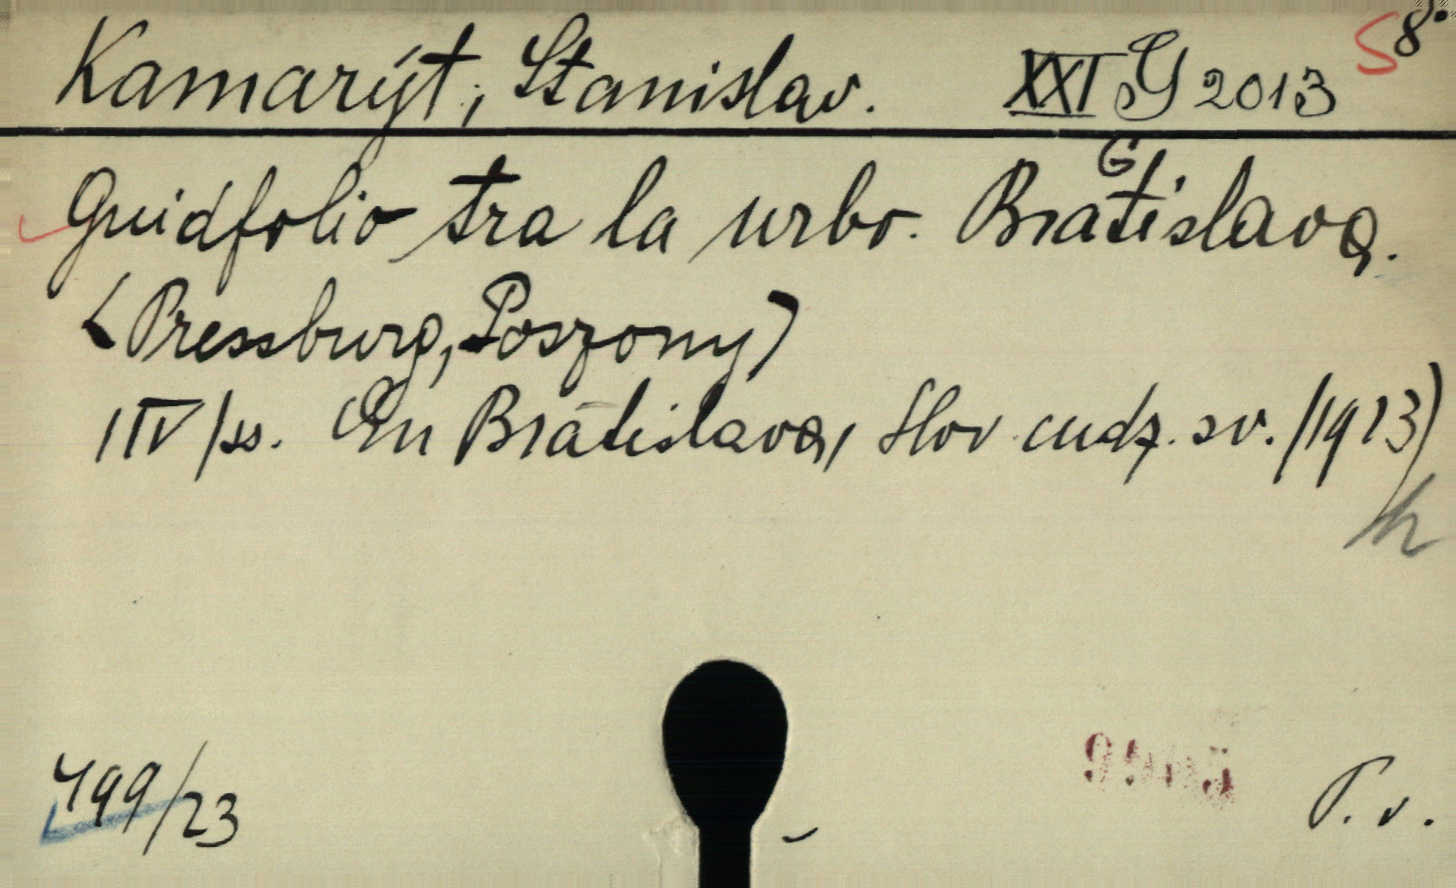 Kamarýt, Stanislav. XXI G 2013 S 8°
G
Guidfolio tra la urbo. Bratislava.
(Pressburg, Poszony)
En Bratislava, Slov. cudz. sv. (1923)
h
499/23
T. v.